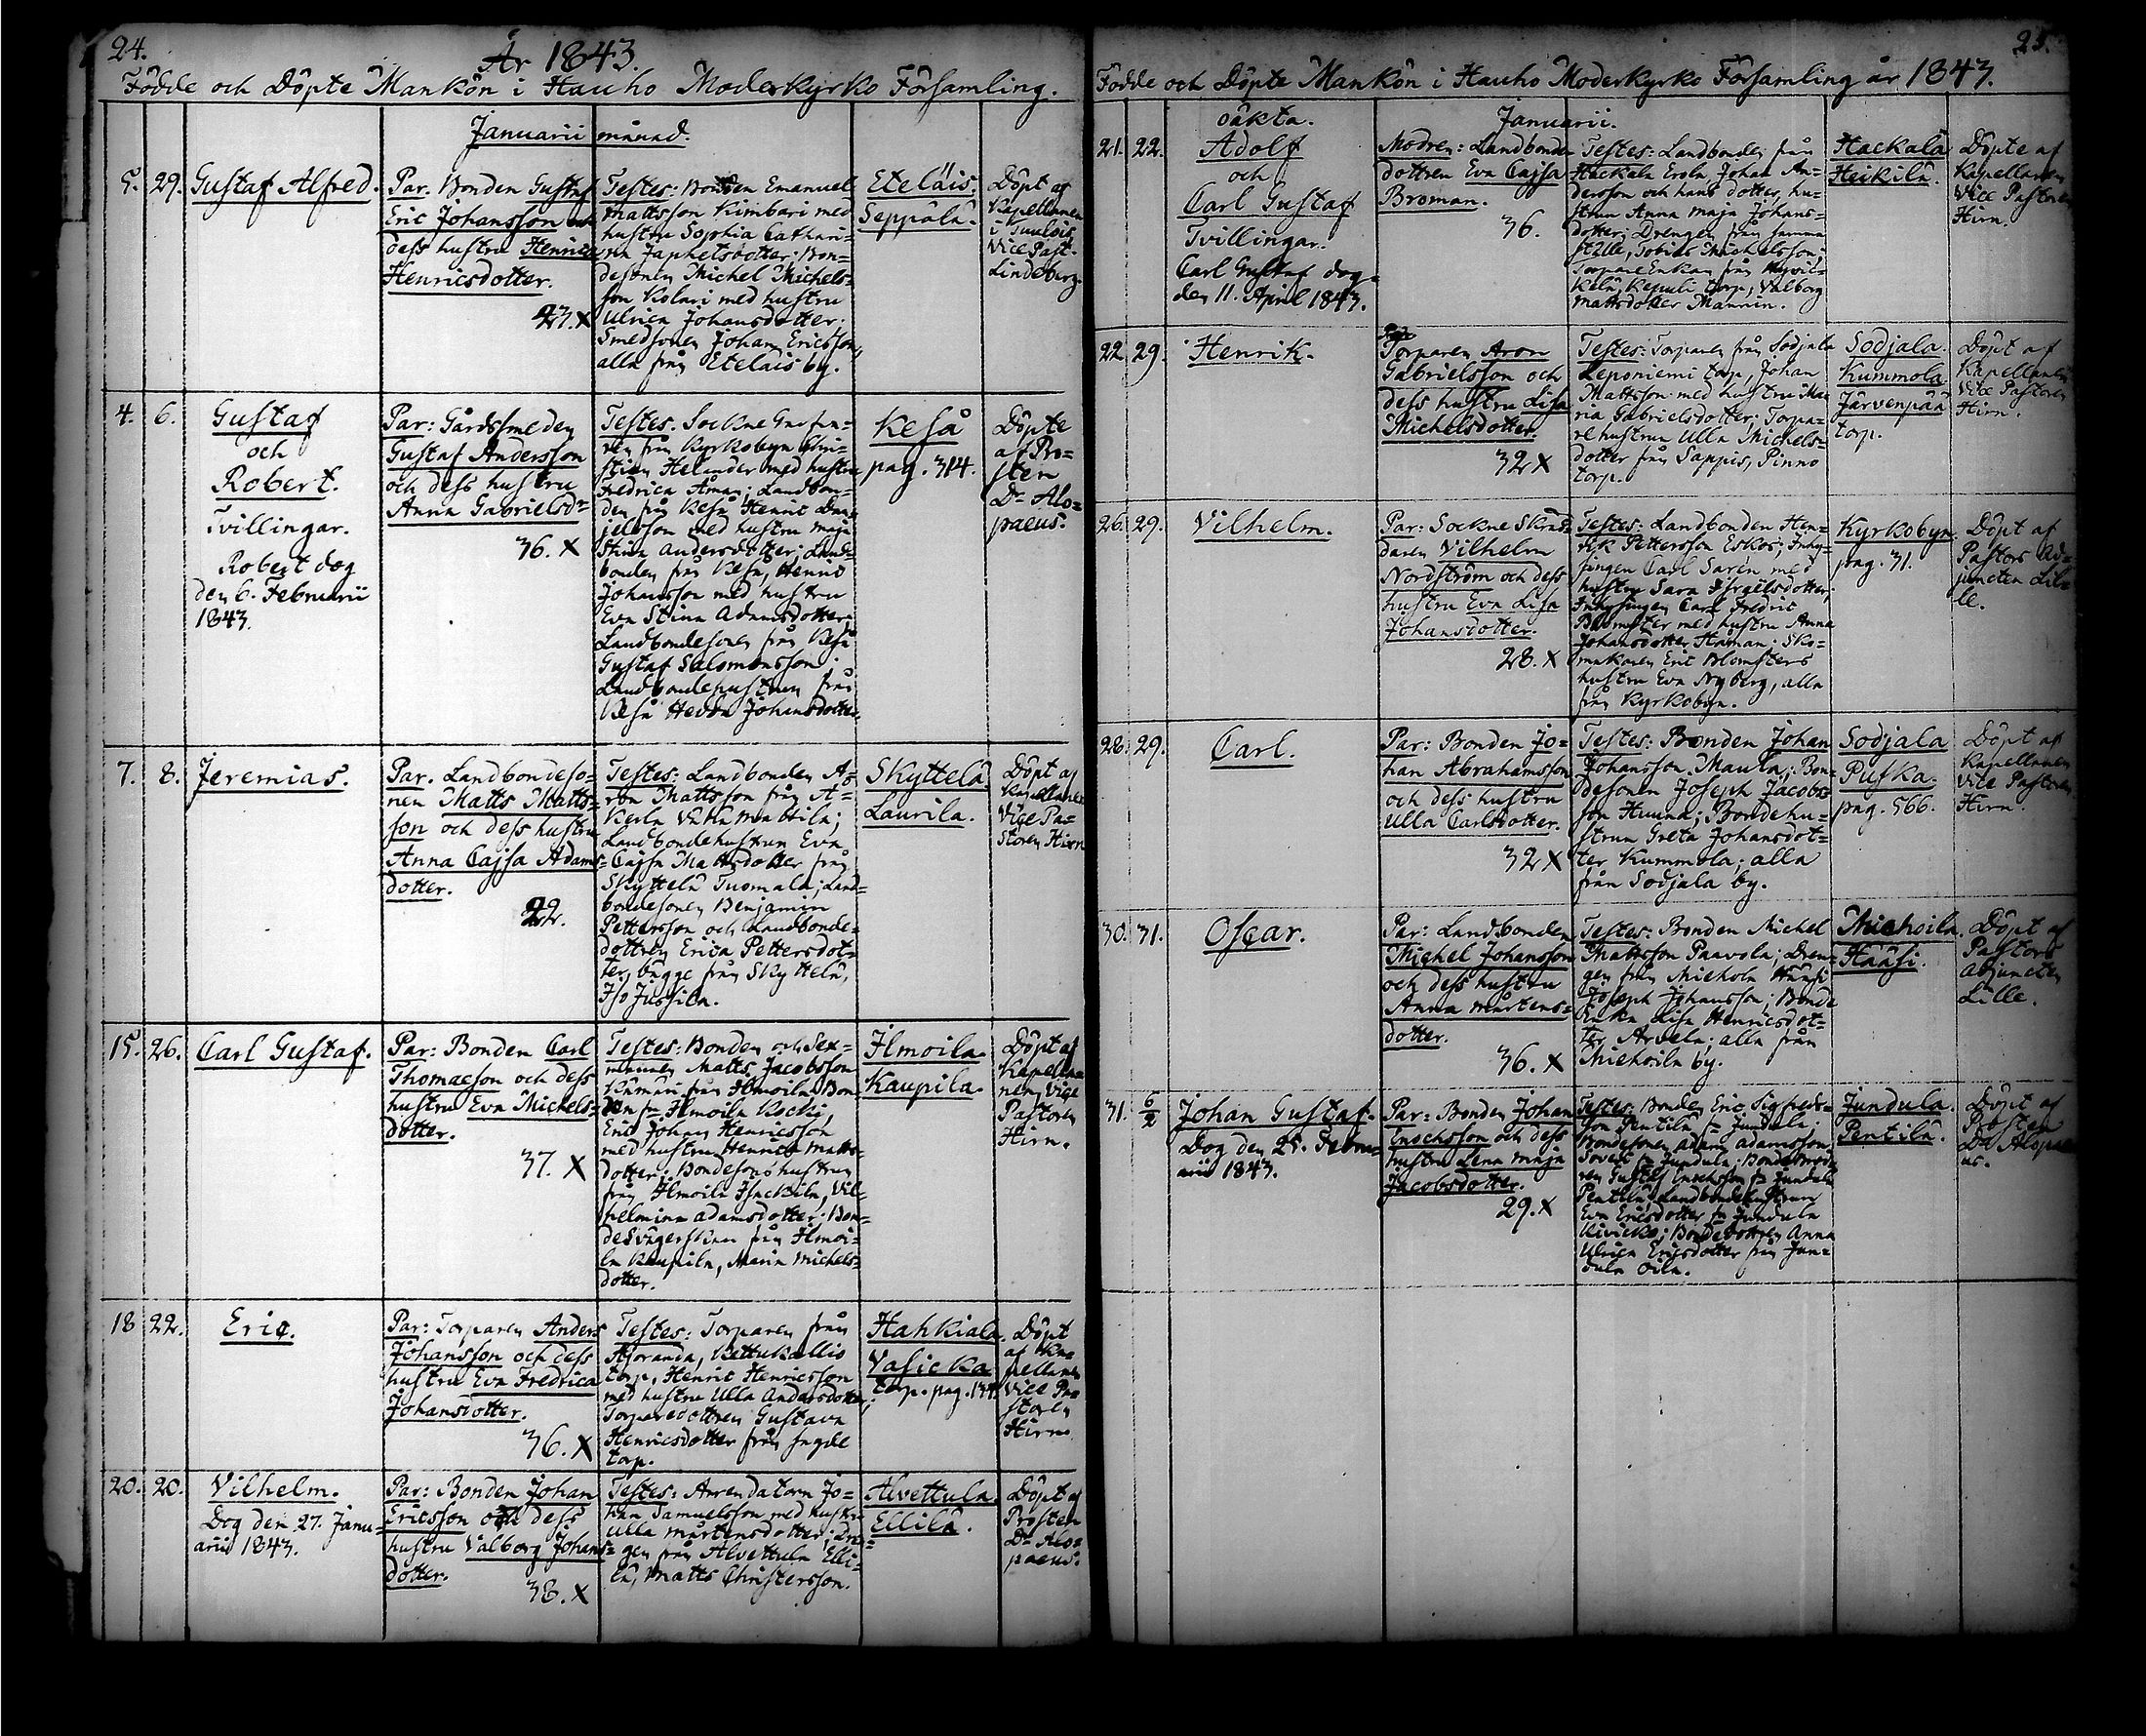 24.
År 1843.
Födde och Döpte Mankön i Hauho Moderkyrko Församling.
Januarii månad.
5. 29. Gustaf Alfred.
Par. Bonden Gustaf
Eric Johansson och
dess hustru Henrica
Henricsdotter.
23. X
Testes: Bonden Emanuel
Mattsson Kimbari med
hustru Sophia Cathari-
na Japhetsdotter; Bon-
desonen Michel Michels-
son Kolari med hustru
Ulrica Johansdotter;
Smedsonen Johan Ericsson,
alla från Eteläis by.
Eteläis.
Seppälä.
Döpt af
Kapellanen
i Tuulois
Vice Past.
Lindeberg.
4. 6. Gustaf
och
Robert.
Tvillingar.
Robert dog
den 6. Februarii
1843.
Par: Gårdssmeden
Gustaf Andersson
och dess hustru
Anna Gabrielsd=
36. X
Testes. Sockne
från Kyrkobyn Chri-
stian Helander med hustru
Fredrica Åman; Landbon-
den från Keså Henric Dan-
jelsson med hustru Maja
Stina Andersdotter; Land-
bonden från Keså, Henric
Johansson med hustru
Eva Stina Adamsdotter;
Landbondesonen från Keså
Gustaf Salomonsson;
Landbondehustrun från
Keså Hedda Johansdotter.
Keså
pag. 314.
Döpte
af Pro-
sten
Dr Alo-
paeus.
7. 8. Jeremias.
Par. Landbondeso-
nen Matts Matts-
son och dess hustru
Anna Cajsa Adams-
dotter.
22.
Testes: Landbonden Aa-
ron Mattsson från A-
kerla
Landbondehustrun Eva
Cajsa Mattsdotter från
Skyttelä Tuomala; Land-
bondesonen Benjamin
Pettersson och Landbonde-
dottren Erica Pettersdot-
ter, bägge från Skyttelä,
Iso Jussila.
Skyttelä.
Laurila.
Döpt af
Kapellanen
Vice Pa-
storen Hirn
15. 26. Carl Gustaf.
Par: Bonden Carl
Thomaeson och dess
hustru Eva Michels-
dotter.
37. X
Testes: Bonden och Sex-
mannen Matts Jacobsson
från Ilmoila; Bon-
den fr. Ilmoila Kocki,
Eric Johan Henricsson
med hustru Henrica Matts-
dotter; Bondesonshustrun
från Ilmoila Isackila, Vil-
helmina Adamsdotter; Bon-
desvägerskan från Ilmoi-
la Kaupila, Maria Michels-
dotter.
Ilmoila.
Kaupila.
Döpt af
Kapella-
nen, Vice
Pastoren
Hirn.
18 22. Eric.
Par: Torparen Anders
Johansson och dess
hustru Eva Fredrica
Johansdotter.
36. X
Testes: Torparen från
Hjoranda, Kettukallio
torp, Henric Henricsson
med hustru Ulla Andersdotter;
Torparedottren Gustava
Henricsdotter från
torp.
Hahkiala.
Vasicka
torp. pag. 134.
Döpt
af Ka-
pellanen
Vice Pa-
storen
Hirn.
20. 20. Vilhelm.
Dog den 27. Janu-
arii 1843.
Par: Bonden Johan
Ericsson och dess
hustru Valborg Johans-
dotter.
38. X
Testes: Arrendatorn Jo-
han Samuelsson med hustru
Ulla Mårtensdotter; Dren-
gen från Alvettula Elli-
lä, Matts Christersson.
Alvettula.
Ellilä.
Döpt af
Prosten
Dr Alo-
paeus.
25.
Födde och Döpte Mankön i Hauho Moderkyrko Församling år 1843.
oäkta.
Januarii.
21. 22. Adolf
och
Carl Gustaf
Tvillingar.
Carl Gustaf dog
den 11. April 1843.
Modren: Landbonde
dottren Eva Cajsa
Broman.
36.
Testes: Landbonden från
Hackala Erola, Johan An-
dersson och hans dotter, hu-
strun Anna Maja Johans-
dotter; Drengen från samma
ställe, Tobias Michelsson;
Torpare Enkan från
torp, Valborg
Mattsdotter Mannin.
Hackala
Heikilä.
Döpte af
Kapellanen
Vice Pastoren
Hirn.
22 29. Henrik.
Torparen Aron
Gabrielsson och
dess hustru Lisa
Michelsdotter.
32 X
Testes: Torparen från Sodjala
Leponiemi torp, Johan
Mattsson med hustru Ma-
ria Gabrielsdotter; Torpa-
rehustrun Ulla Michels-
dotter från Sappis, Pinno
torp.
Sodjala.
Kummola
Järvenpää
torp.
Döpt af
Kapellanen
Vice Pastoren
Hirn.
26. 29. Vilhelm.
Par: Sockne Skräd-
daren Vilhelm
Nordström och dess
hustru Eva Lisa
Johansdotter.
28. X
Testes: Landbonden Hen-
rik Pettersson Eskos; Inhy-
singen Carl Saren med
hustru Sara Israelsdotter;
Inhysingen Carl Fredric
Blomster med hustru Anna
Johansdotter Haman; Sko-
makaren Eric Blomsters
hustru Eva Nyberg, alla
från Kyrkobyn.
Kyrkobyn.
pag. 31.
Döpt af
Pastors Ad-
juncten Lil-
le.
28. 29. Carl.
Par: Bonden Jo-
han Abrahamsson
och dess hustru
Ulla Carlsdotter.
32 X
Testes: Bonden Johan
Johansson Maula; Bon-
desonen Joseph Jacobs-
son Huuna; Bondehu-
strun Greta Johansdot-
ter Kummola; alla
från Sodjala by.
Sodjala
Puska.
pag. 566.
Döpt af
Kapellanen
Vice Pastoren
Hirn.
30. 31. Oscar.
Par: Landbonden
Michel Johansson
och dess hustru
Anna Mårtens-
dotter.
36. X
Testes: Bonden Michel
Mattsson Paavola; Dren-
gen från Miehola Hääsi
Joseph Johansson; Bonde
Enka Lisa Henricsdot-
ter Arvela; alla från
Miehoila by.
Miehoila.
Hääsi.
Döpt af
Pastors
Adjuncten
Lille.
31. 6/2 Johan Gustaf.
Dog den 25. Febru-
arii 1843.
Par: Bonden Johan
Enochsson och dess
hustru Lena Maja
Jacobsdotter.
29. X
Testes: Bonden Eric Sigfreds-
son Pentilä fr. Jundula;
Bondesonen Adam Adamsson
fr. Jundula; Bondebrod-
ren Gustaf Enochsson fr. Jundula
Pentilä; Landbondehustrun
Eva Ericsdotter fr. Jundula
Kivicko; Bondedottren Anna
Ulrica Ericsdotter från Jun-
dula Oila.
Jundula.
Pentilä.
Döpt af
Prosten
Dr Alopae
us.